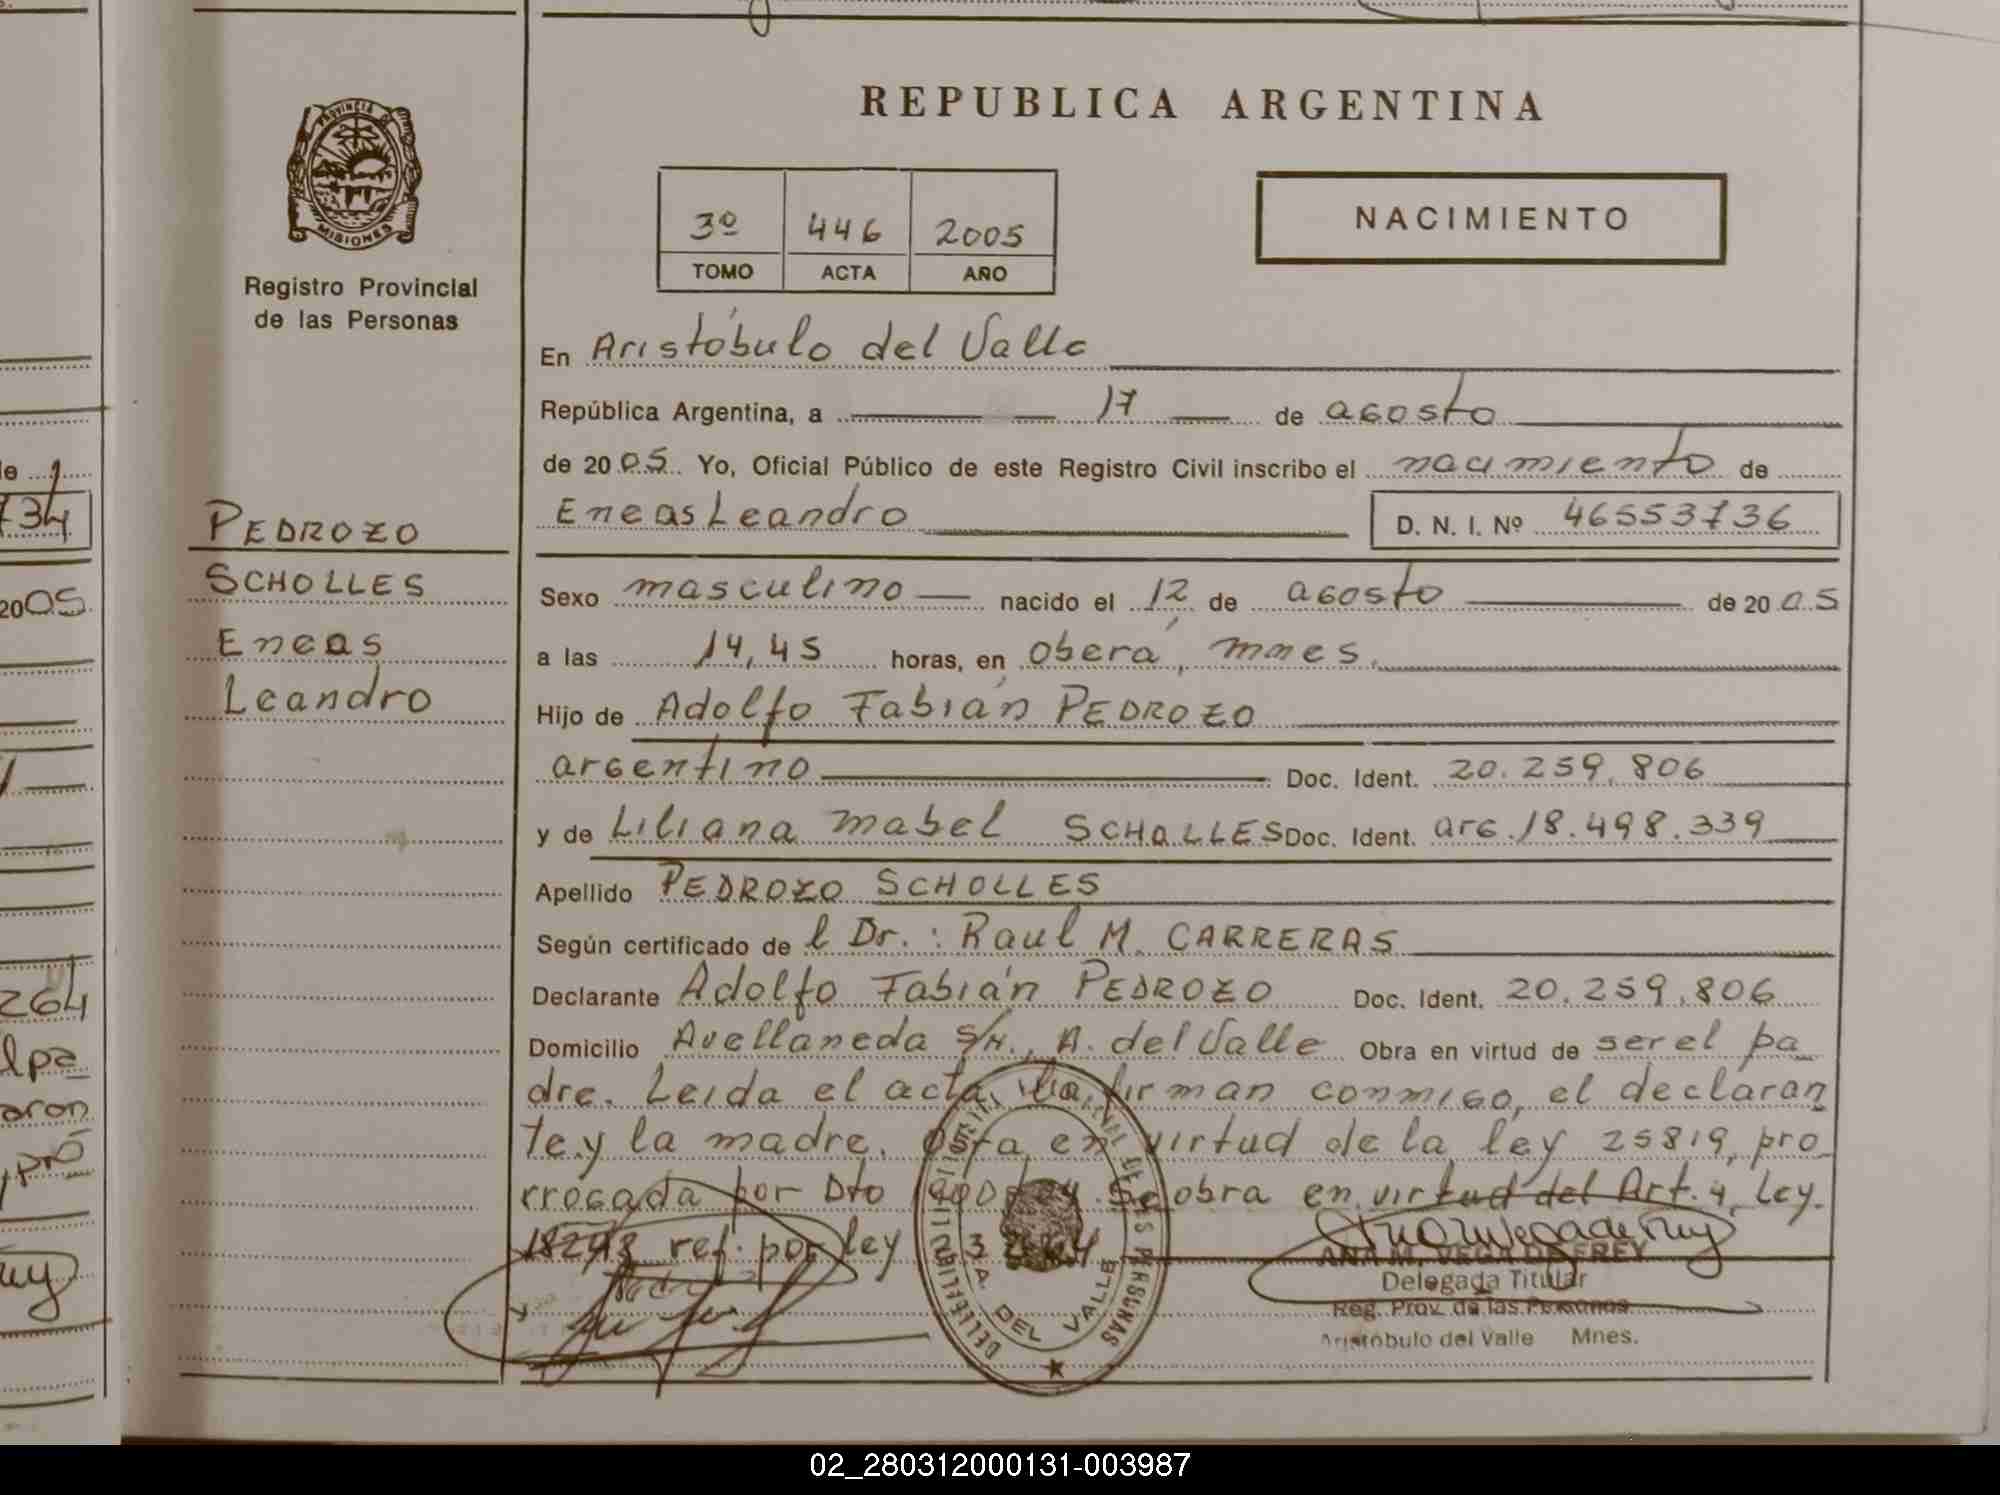 REPUBLICA ARGENTINA
PROVINCIA DE
MISIONES
Registro Provincial
de las Personas
3º 446 2005
TOMO ACTA AÑO
NACIMIENTO
En Aristóbulo del Valle
República Argentina, a 17 de agosto
de 2005 Yo, Oficial Público de este Registro Civil inscribo el nacimiento de
Eneas Leandro D. N. I. Nº 46553736
PEDROZO
SCHOLLES
Eneas
Leandro
Sexo masculino nacido el 12 de agosto de 2005
a las 14,45 horas, en Oberá, mnes.
Hijo de Adolfo Fabián PEDROZO
argentino Doc. Ident. 20.259.806
y de Liliana Mabel SCHOLLES Doc. Ident. arg. 18.498.339
Apellido PEDROZO SCHOLLES
Según certificado de l Dr.: Raul M. CARRERAS
Declarante Adolfo Fabián PEDROZO Doc. Ident. 20.259.806
Domicilio Avellaneda S/N., A. del Valle Obra en virtud de ser el pa
dre. Leida el acta, la firman conmigo, el declaran
te y la madre. Esta en virtud de la ley 25819, pro
rrogada por Dto Se obra en virtud del Art. 4, Ley.
18248 ref. por ley
A. DEL VALLE
DE LAS PERSONAS
ANA M. VEGA DE FREY
Delegada Titular
Reg. Prov. de las Personas
Aristóbulo del Valle Mnes.
de 1
734
2005
264
l pa
aron
, pró
02_280312000131-003987